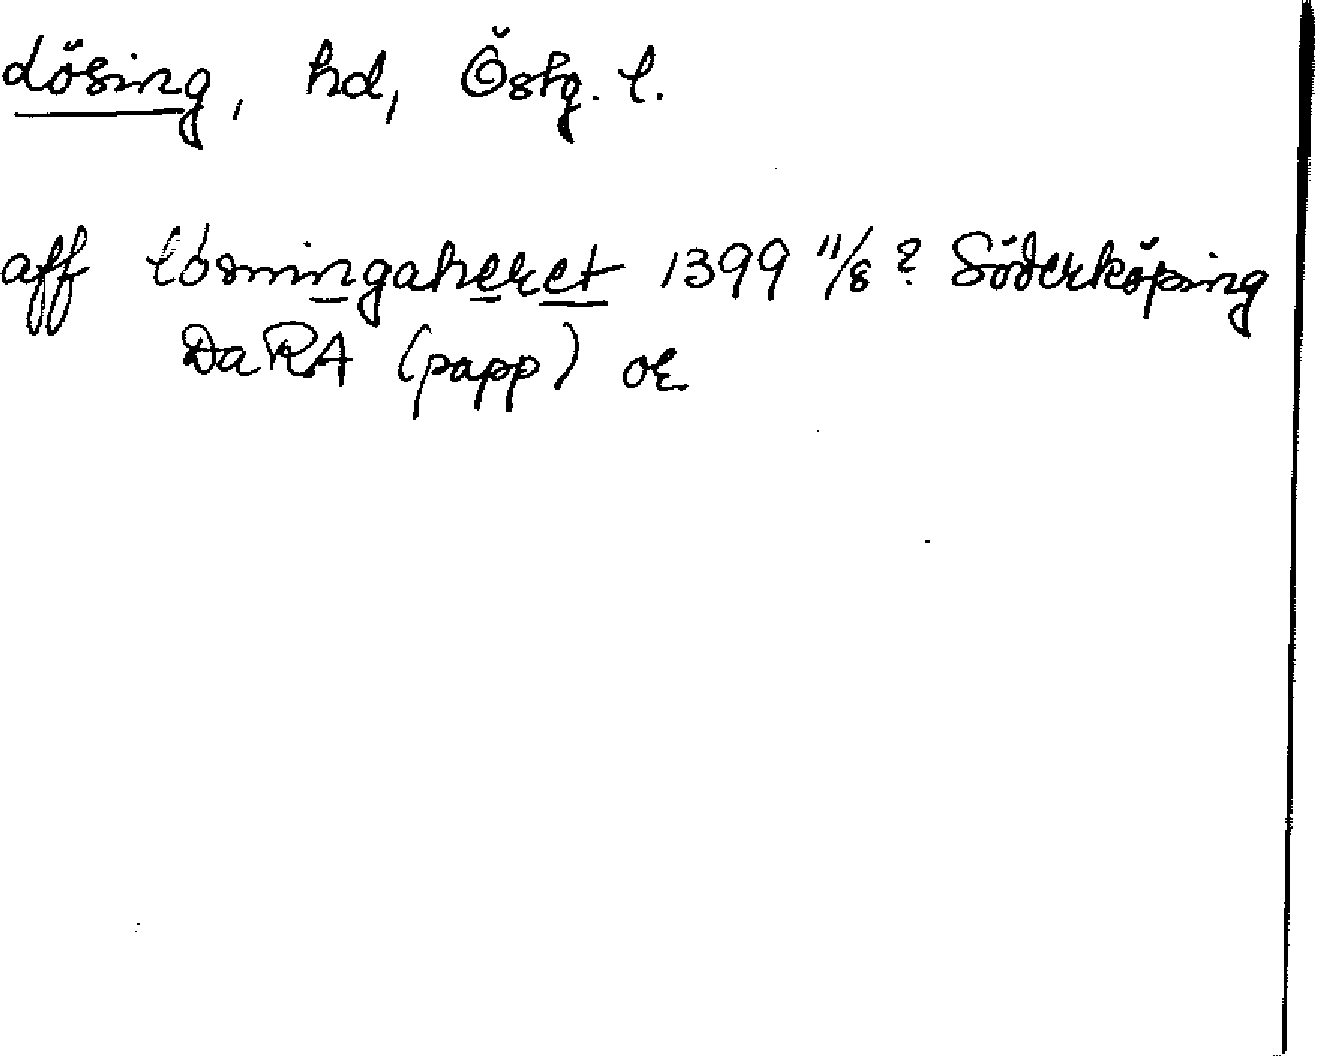 Lösing, hd, Östg. l.
aff lösningaheret 1399 11/8? Söderköping
DaRA (papp) or